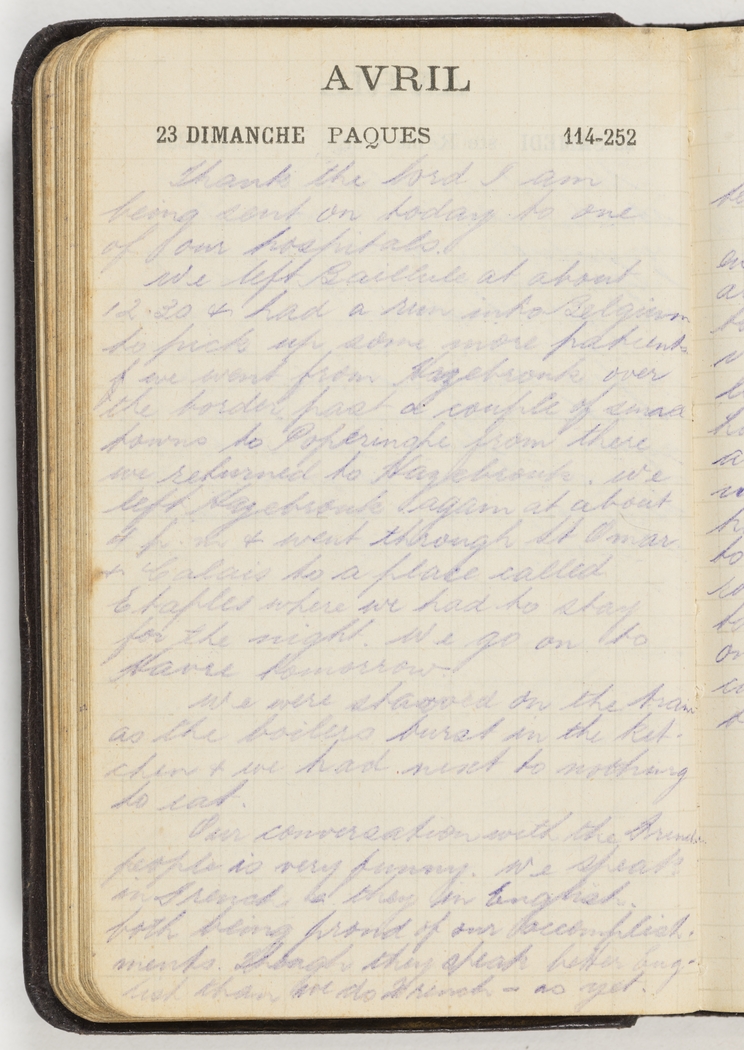 AVRIL
23 DIMANCHE PAQUES 114-252
Thank the Lord I am
being sent on today to one
of our hospitals.
We left Bailleule at about
12.30 & had a run into Belgium
to pick up some more patients
& we went from Hazebrouk over
the border past a couple of small
towns to Poperinghe from there
we returned to Hazebrouk. We
left Hazebrouk again at about
4 p.m & went through St Omar
& Calais to a place called
Etaples where we had to stay
for the night. We go on to
Havre tomorrow.
We were starved on the train
as the boilers burst in the kit-
chen & we had next to nothing
to eat.
Our conversation with the French
people is very funny. We speak
in French & they in English.
both being proud of our accomplish-
ments. Though they speak better Eng-
lish than we do French - as yet.